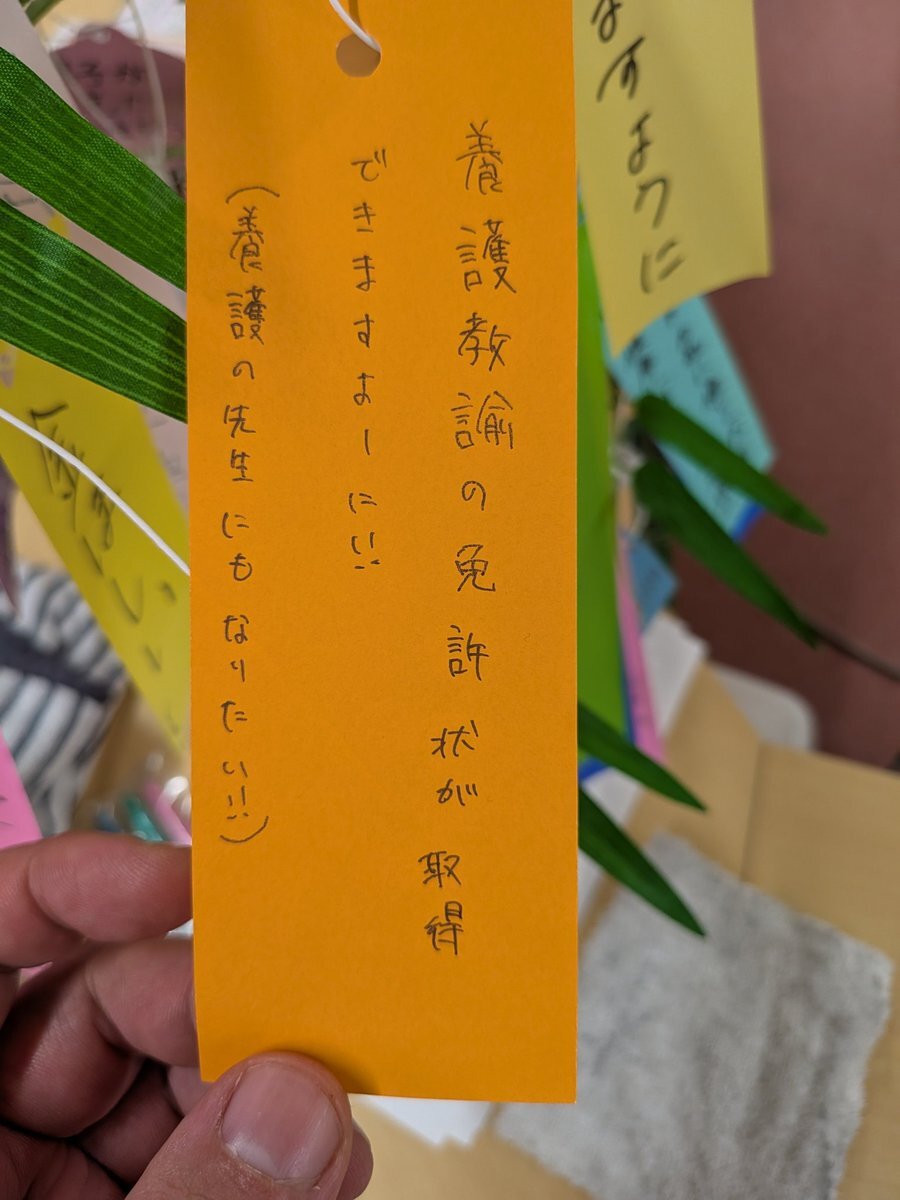 養護教諭の免許状が取得
できますよーにい!!
(養護の先生にもなりたい!!)
ますように